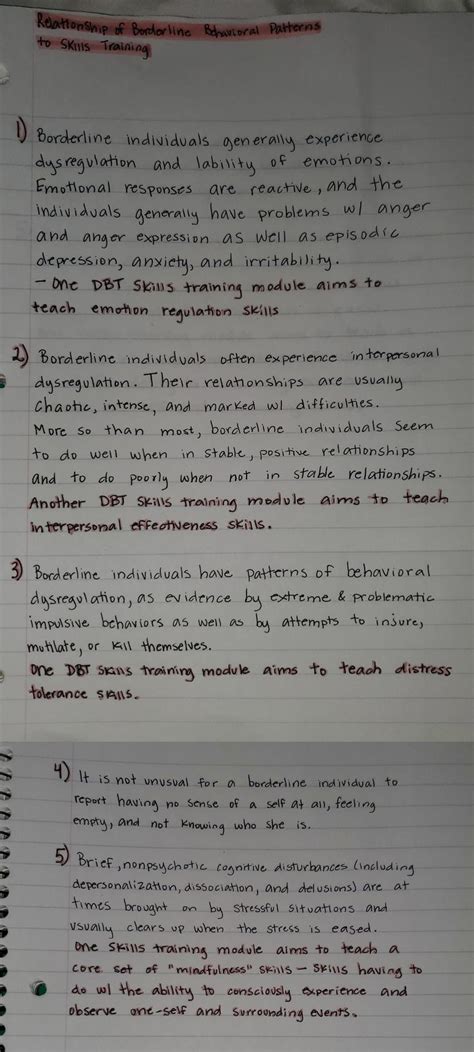 Relationship of Borderline Behavioral Patterns
to Skills Training
1) Borderline individuals generally experience
dysregulation and lability of emotions.
Emotional responses are reactive, and the
individuals generally have problems w/ anger
and anger expression as well as episodic
depression, anxiety, and irritability.
- One DBT Skills training module aims to
teach emotion regulation skills
2) Borderline individuals often experience interpersonal
dysregulation. Their relationships are usually
Chaotic, intense, and marked w/ difficulties.
More so than most, borderline individuals seem
to do well when in stable, positive relationships
and to do poorly when not in stable relationships.
Another DBT Skills training module aims to teach
interpersonal effectiveness skills.
3) Borderline individuals have patterns of behavioral
dysregulation, as evidence by extreme & problematic
impulsive behaviors as well as by attempts to injure,
mutilate, or kill themselves.
One DBT Skills training module aims to teach distress
tolerance skills.
4) It is not unusual for a borderline individual to
report having no sense of a self at all, feeling
empty, and not knowing who she is.
5) Brief, nonpsychotic cognitive disturbances (including
depersonalization, dissociation, and delusions) are at
times brought on by stressful situations and
usually clears up when the stress is eased.
One skills training module aims to teach a
core set of "mindfulness" skills - skills having to
do w/ the ability to consciously experience and
observe one-self and surrounding events.